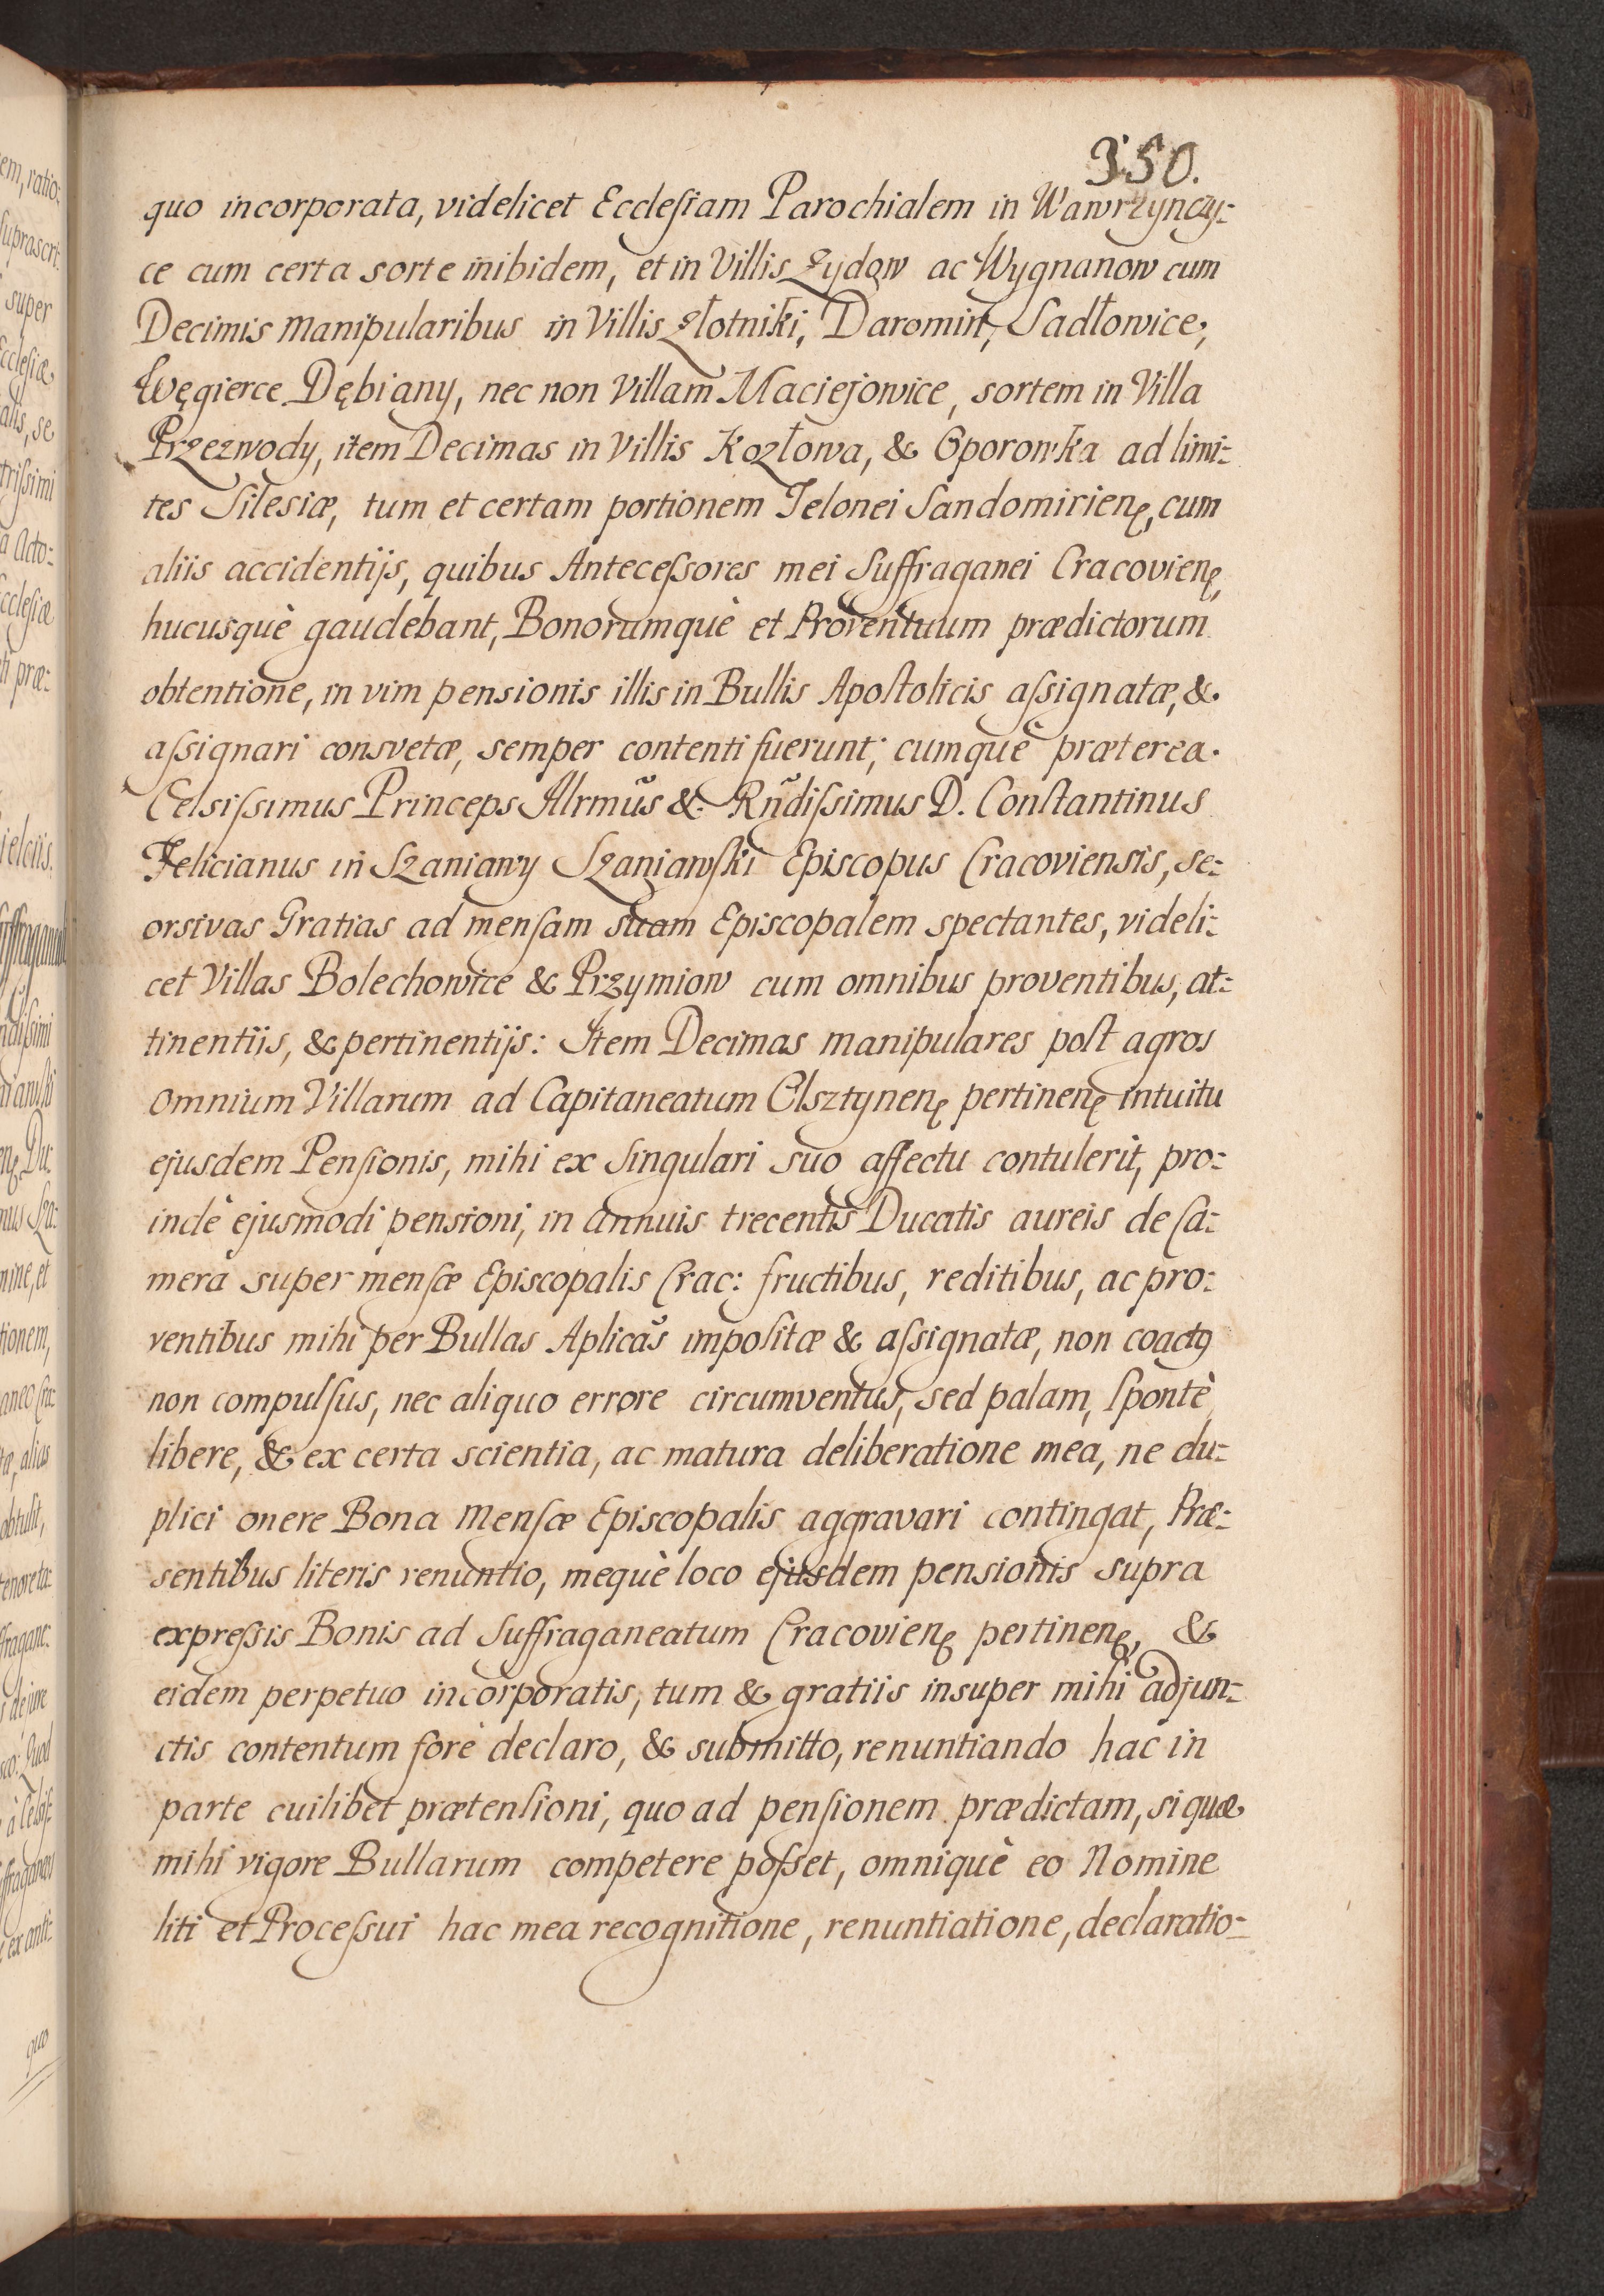 350.
quo incorporata, videlicet Ecclesiam Parochialem in Wawrzynczy:
ce cum certa sorte inibidem, et in Villis Zydow ac Wygnanow cum
Decimis Manipularibus in Villis Złotniki, Daromin, Sadłowice,
Węgierce Dębiany, nec non Villam Maciejowice, sortem in Villa
Przezwody, item Decimas in Villis Kozłowa, & Oporowka ad limi:
tes Silesiæ, tum et certam portionem Telonei Sandomirienę, cum
aliis accidentijs, quibus Antecessores mei Suffraganei Cracovienę,
hucusquè gaudebant, Bonorumquè et Proventuum prædictorum
obtentione, in vim pensionis illis in Bullis Apostolicis assignatæ, &
assignari consvetæ, semper contenti fuerunt; cumquè præterea
Celsissimus Princeps Illrmũs & Rñdissimus D. Constantinus
Felicianus in Szaniawy Szaniawski Episcopus Cracoviensis, se:
orsivas Gratias ad mensam suam Episcopalem spectantes, videli:
cet Villas Bolechowice & Przymiow cum omnibus proventibus, at:
tinentiis, & pertinentijs: Item Decimas manipulares post agros
omnium Villarum ad Capitaneatum Olsztynenę pertinenę intuitu
ejusdem Pensionis, mihi ex singulari suo affectu contulerit, pro:
indè ejusmodi pensioni, in annuis trecentis Ducatis aureis de Ca:
mera super mensæ Episcopalis Crac: fructibus, reditibus, ac pro:
ventibus mihi per Bullas Aplicãs impositæ & assignatæ, non coactꝰ
non compulsus, nec aliquo errore circumventus, sed palam, spontè,
libere, & ex certa scientia, ac matura deliberatione mea, ne du:
plici onere Bona Mensæ Episcopalis aggravari contingat, Præ:
sentibus literis renuntio, mequè loco ejusdem pensionis supra
expressis Bonis ad Suffraganeatum Cracovienę pertinenę, &
eidem perpetuo incorporatis, tum & gratiis insuper mihi adjun:
ctis contentum forè declaro, & submitto, renuntiando hac in
parte cuilibet prætensioni, quo ad pensionem prædictam, si quæ
mihi vigore Bullarum competere posset, omniquè eo Nomine
liti et Processui hac mea recognitione, renuntiatione, declaratio: